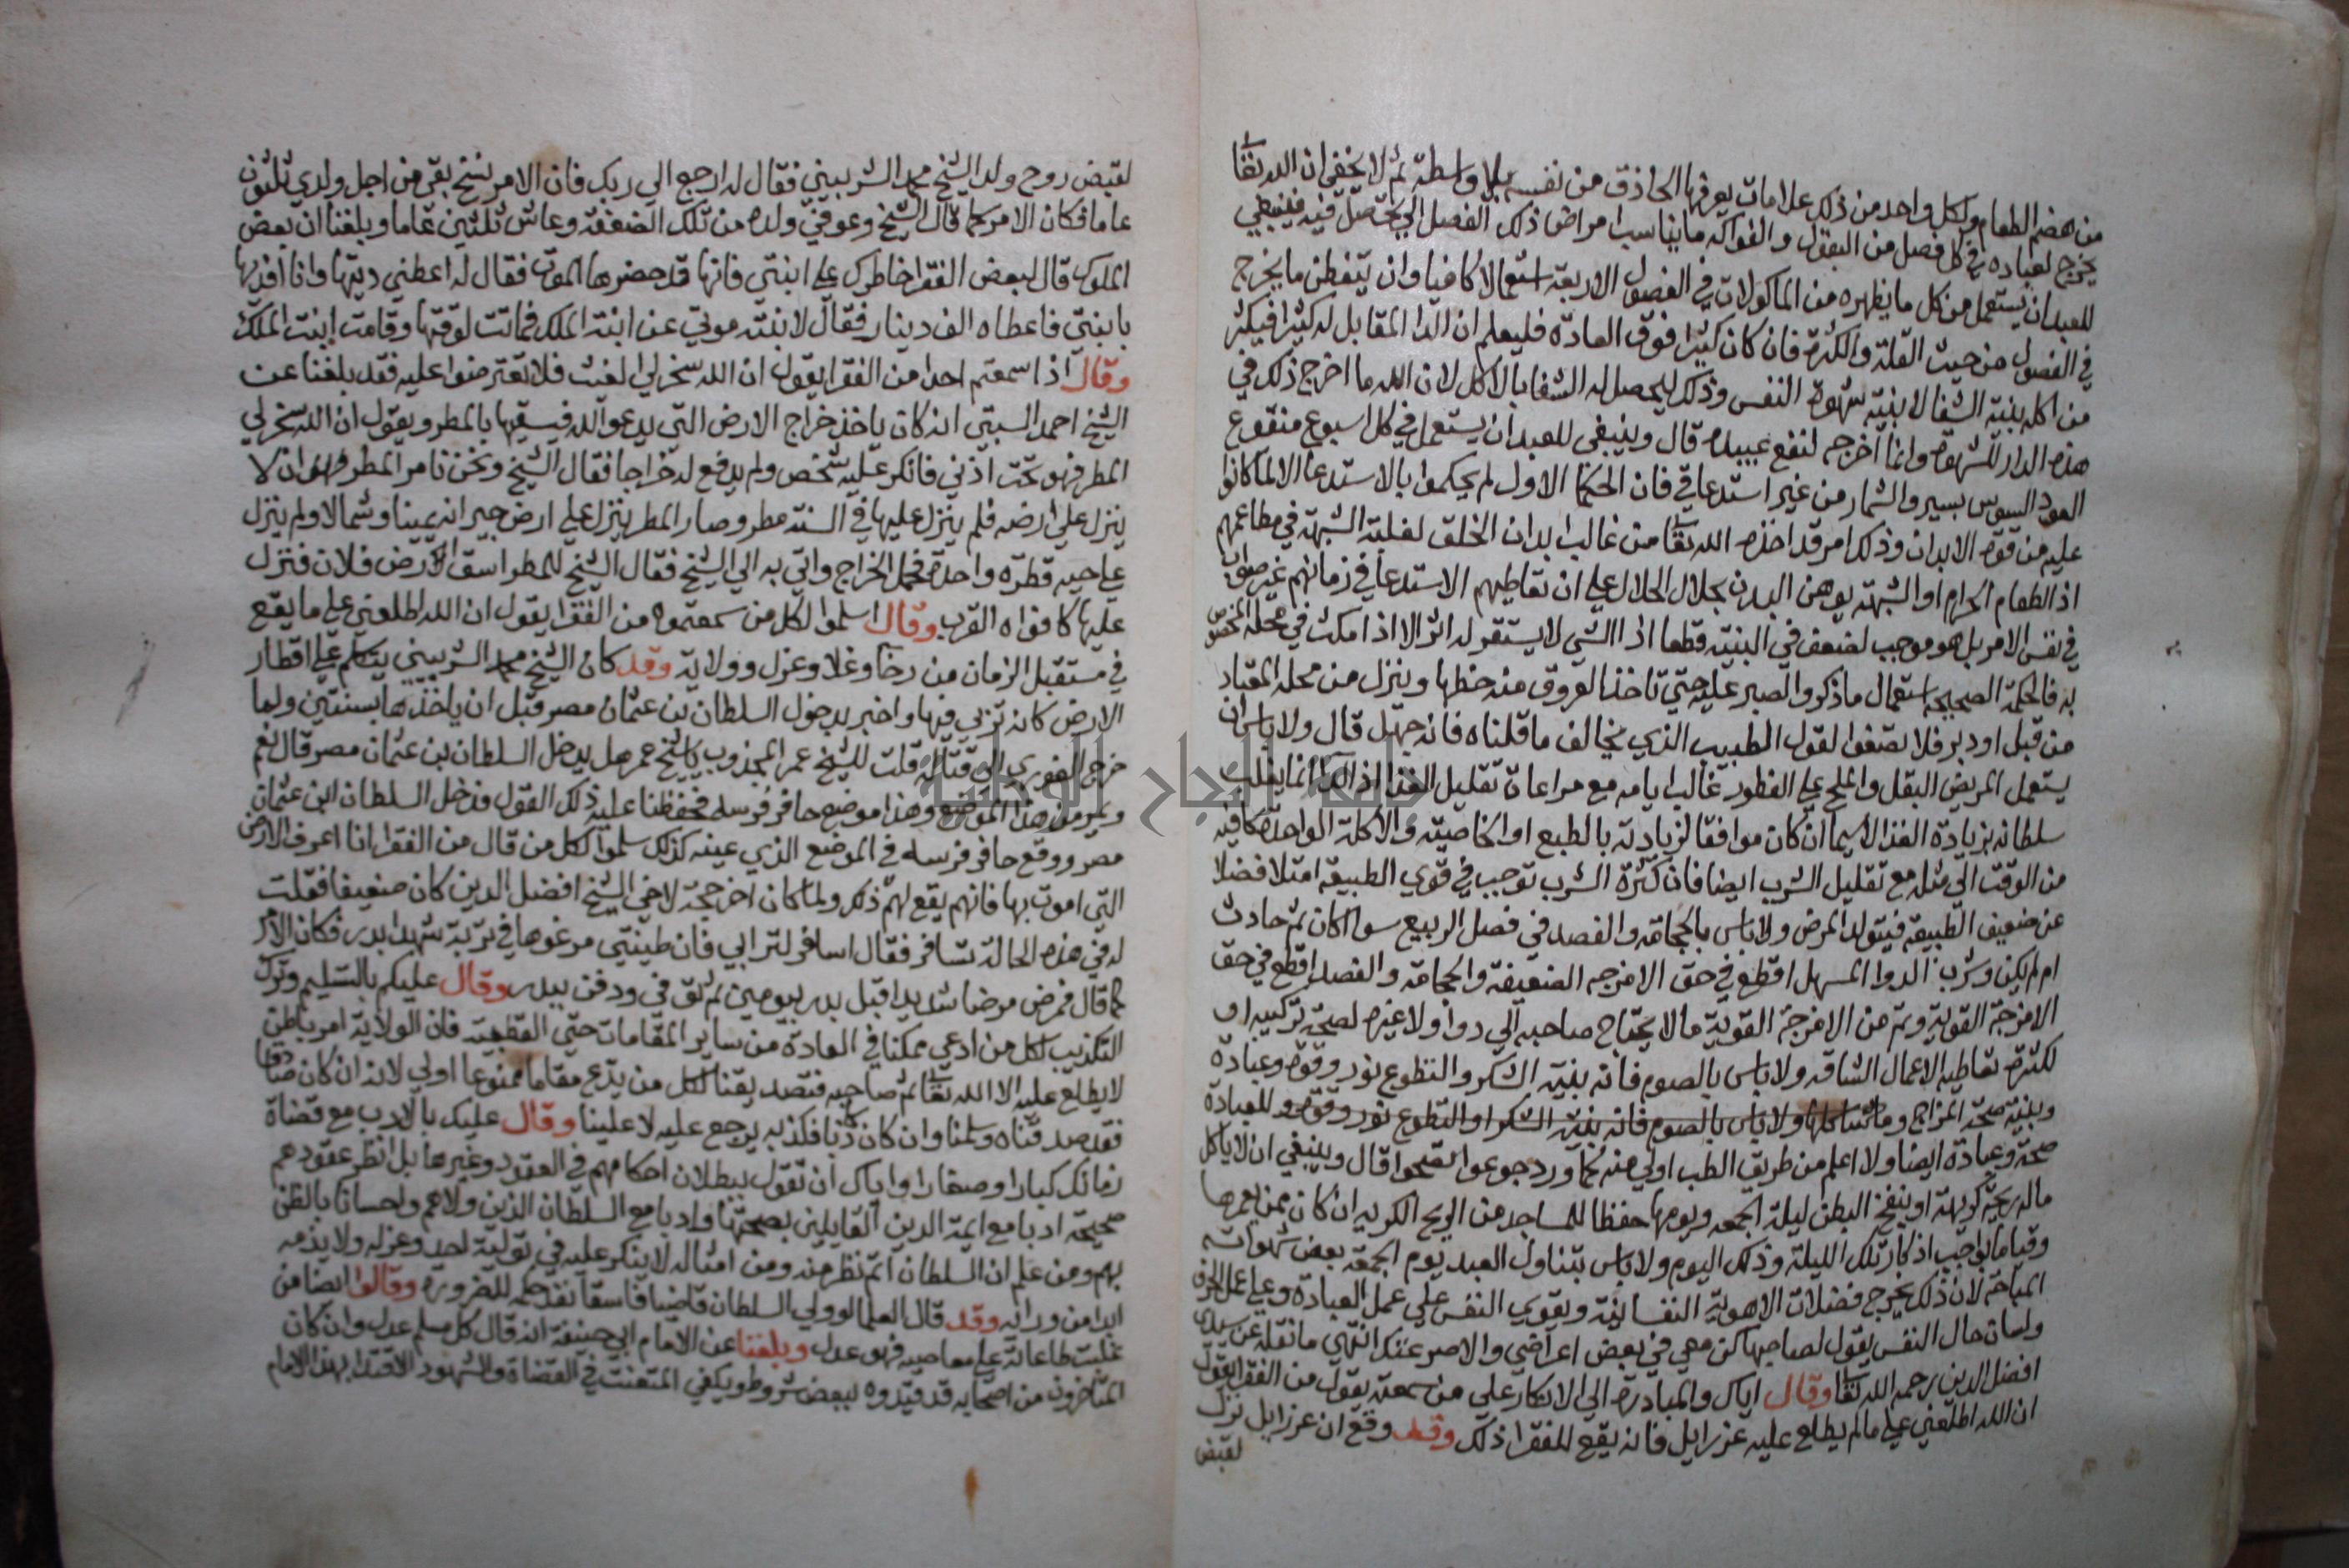 من هضم الطعام ولكل واحد من ذلك علامات يعرفها الحاذق من نفسه بلا واسطة ثم لا يخفي ان الله تعا
يخرج لعباده في كل فصل من البقول والفواكه ما يناسب امراض ذلك الفصل التي تحصل فيه فينبغي
للعبد ان يستعمل من كل ما يظهره من الماكولات في الفصول الاربعة استعمالا كافيا وان يتفطن ما يخرج
في الفصول من حيث القلة والكثرة فان كان كثيرا فوق العادة فليعلم ان الدا المقابل له كثيرا فيكثر
من اكله بنية الشفا لا بنية شهوة النفس وذلك ليحصل له الشفا بالاكل لان الله ما اخرج ذلك في
هذه الدار للشهوة وانما اخرجه لنفع عبيده قال وينبغي للعبد ان يستعمل في كل اسبوع منقوع
العود السوس بسير والشمار من غير استدعا قي فان الحكما الاول لم يحكموا بالاستدعا الا لما كانوا
عليه من قوة الابدان وذلك امر قد اخذه الله تعا من غالب ابدان الخلق لغلبة الشبهة في مطاعمهم
اذ الطعام الحرام او الشبهة يوهن البدن بخلال الحلال علي ان تعاطيهم الاستدعا في زمانهم غير صواب
في نفس الامر بل هو موجب لضعف في البنية قطعا اذ الشي لا يستقر له اثر الا اذا مكث في محله المخصوص
به فالحكمة الصحيحة استعمال ما ذكر والصبر عليه حتي تاخذ العروق منه حظها وينزل من محله المعتاد
من قبل او دبر فلا تصغوا لقول الطبيب الذي يخالف ما قلناه فانه جهل قال ولا باس ان
يستعمل المريض البقل والملح علي الفطور غالب ايامه مع مراعاة تقليل الغذا اذ الدا انما يغلب
سلطانه بزيادة الغذا لاسيما ان كان موافقا لزيادته بالطبع او الخاصية والاكلة الواحدة كافية
من الوقت الي مثله مع تقليل الشرب ايضا فان كثرة الشرب توجب في قوي الطبيعة امتلا فضلا
عن ضعيف الطبيعة فيتولد المرض ولا باس بالحجامة والفصد في فصل الربيع سوا كان ثم حادث
ام لم يكن وشرب الدوا المسهل اقطع في حق الامزجه الضعيفة والحجامة والفصد اقطع في حق
الامزجة القوية وثم من الامزجة القوية ما لا يحتاج صاحبه الي دوا ولا غيره لصحة تركيبه او
لكثرة تعاطيه الاعمال الشاقه ولا باس بالصوم فانه بنية الشكر والتطوع نور وقوة وعبادة
وبنية صحة المزاج وما شاكلها ولا باس بالصوم فانه بنية الشكر او التطوع نور وقوة وللعبادة
صحة وعبادة ايضا ولا اعلم من طريق الطب اولي منه كما ورد جوعوا تصحوا قال وينبغي ان لا ياكل
ماله ريحة كريهة او ينفخ البطن ليلة الجمعه ويومها حفظا للمساجد من الريح الكريه ان كان ممن يعمرها
وقياما بواجب اذكار تلك الليلة وذلك اليوم ولا باس بتناول العبد يوم الجمعة بعض شهواته
المباحة لان ذلك يخرج فضلات الاهوية النفسانية ويقوي النفس علي عمل العبادة وعلي عمل الحرفة
ولسان حال النفس يقول لصاحبها كن معي في بعض اغراضي والا صرعتك انتهي ما نقله عن سيدي
افضل الدين رحمه الله تعا وقال اياك والمبادرة الي الانكار علي من سمعته يقول من الفقرا يقول
ان الله اطلعني علي ما لم يطلع عليه عزرايل فانه يقع للفقرا ذلك وقد وقع ان عزرايل نزل
لقبض
لقبض روح ولد الشيخ محمد الشربيني فقال له ارجع الي ربك فان الامر نسخ بقي من اجل ولدي ثلثون
عاما فكان الامر كما قال الشيخ وعوفي ولده من تلك الضعفة وعاش ثلثين عاما وبلغنا ان بعض
الملوك قال لبعض الفقرا خاطرك علي ابنتي فانها قد حضرها الموت فقال له اعطني ديتها وانا افديها
بابنتي فاعطاه الف دينار فقال لابنته موتي عن ابنة الملك فماتت لوقتها وقامت ابنت الملك
وقال اذا سمعتم احدا من الفقرا يقول ان الله سخر لي الغيث فلا تعترضوا عليه فقد بلغنا عن
الشيخ احمد السبتي انه كان ياخذ خراج الارض التي يدعو الله فيسقيها بالمطر ويقول ان الله سخر لي
المطر فهو تحت اذني فانكر عليه شخص ولم يدفع له خراجا فقال الشيخ ونحن نامر المطر ان لا
ينزل علي ارضه فلم ينزل عليها في السنة مطر وصار المطر ينزل علي ارض جيرانه يمينا وشمالا ولم ينزل
علي حيه قطرة واحدة فحمل الخراج واتي به الي الشيخ فقال الشيخ للمطر اسق الارض فلان فنزل
عليها كافواه القرب وقال اسلموا لكل من سمعتموه من الفقرا يقول ان الله اطلعني علي ما يقع
في مستقبل الزمان من رخا وغلا وعزل وولاية وقد كان الشيخ محمد الشربيني يتكلم علي اقطار
الارض كانه تربي فيها واخبر بدخول السلطان بن عثمان مصر قبل ان ياخذها بسنتين ولما
خرج الغوري الي قتاله قلت للشيخ عمر المجذوب يا شيخ عمر هل يدخل السلطان بن عثمان مصر قال نعم
ويمر من هذا الموضع وهذا موضع حافر فرسه فحفظنا عليه ذلك القول فدخل السلطان ابن عثمان
مصر ووقع حافر فرسه في الموضع الذي عينه كذلك سلموا لكل من قال من الفقرا انا اعرف الارض
التي اموت بها فانهم يقع لهم ذلك ولما كان اخر حجة لاخي الشيخ افضل الدين كان ضعيفا فقلت
له في هذه الحالة تسافر فقال اسافر لترابي فان طينتي مرغوها في تربة شهدا بدر فكان الامر
كما قال فمرض مرضا شديدا قبل بدر بيومين ثم توفي ودفن ببدر وقال عليكم بالتسليم وترك
التكذيب لكل من ادعي ممكنا في العادة من ساير المقامات حتي القطبية فان الولاية امر باطن
لا يطلع عليه الا الله تعا ثم صاحبه فتصديقنا لكل من يدع مقاما ممنوعا اولي لانه ان كان صادقا
فقد صدقناه وسلمنا وان كان كاذبا فكذبه يرجع عليه لا علينا وقال عليك بالادب مع قضاة
زمانك كبارا وصغارا واياك ان تقول ببطلان احكامهم في العقود وغيرها بل انظر عقودهم
صحيحة ادبا مع ايمة الدين القايلين بصحتها وادبا مع السلطان الذين ولاهم واحسانا بالظن
بهم ومن علم ان السلطان اتم نظر منه ومن امثاله لا ينكر عليه في تولية احد وعزله ولا يذمه
ابدا من ورايه وقد قال العلما لو ولي السلطان قاضيا فاسقا نفذ حكمه للضرورة وقالوا ايضا من
غلبت طاعاته علي معاصيه فهو عدل وبلغنا عن الامام ابي حنيفة انه قال كل مسلم عدل وان كان
المتاخرون من اصحابه قد قيدوه ببعض شروط ويكفي المتعنت في القضاة والشهود الاقتدا بهذا الامام
جامعة النجاح الوطنية